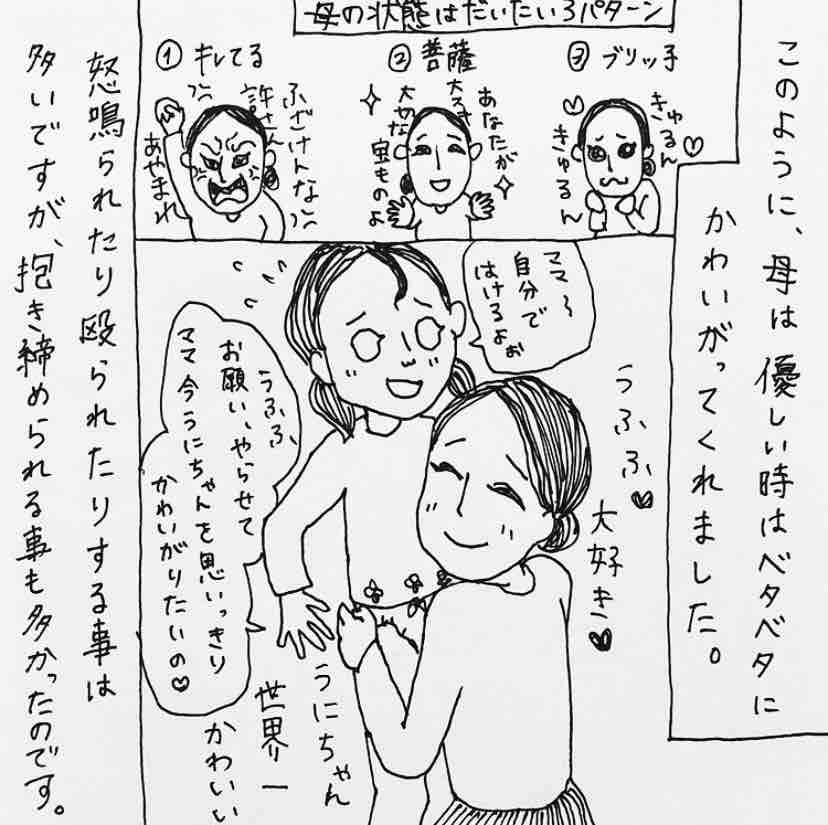 このように、母は優しい時はベタベタに
かわいがってくれました。
母の状態はだいたい3パターン
③ブリッ子
きゅるん
きゅるん
②菩薩
あなたが
大スキ
大切な
宝ものよ
①キレてる
ふざけんな
許さん
あやまれ
ママ〜
自分で
はけるよぉ
うふふ
お願い、やらせて
ママ今うにちゃんを思いっきり
かわいがりたいの♡
うふふ♥
大好き♥
うにちゃん
世界一
かわいい
怒鳴られたり殴られたりする事は
多いですが、抱き締められる事も多かったのです。